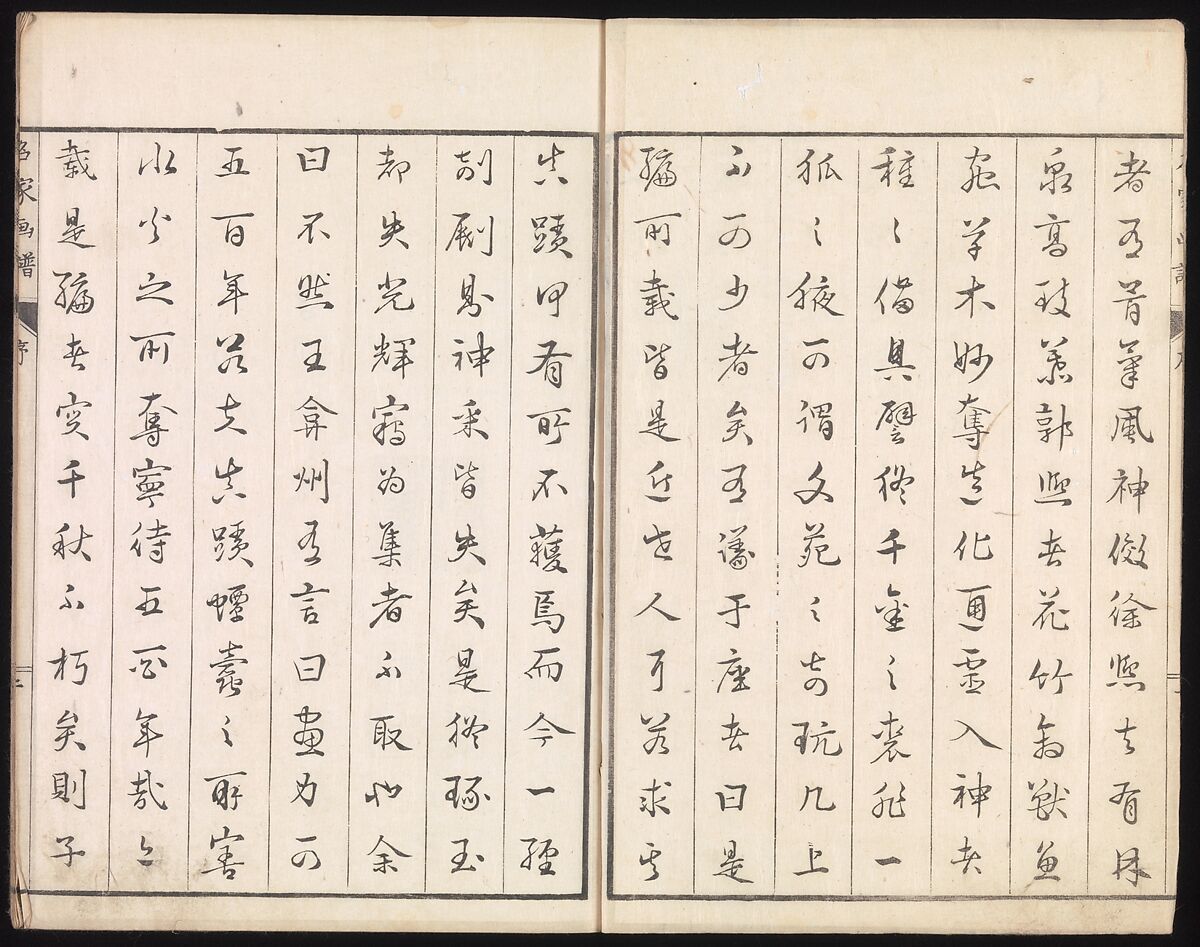 者有骨氣風神僾徐熙者有林
泉高致藁郭熙者花竹禽獸魚
蟲草木妙奪造化通靈入神者
種〻備具譬猶千金之裘非一
狐之腋可謂文苑之奇玩几上
不可少者矣有議于座者曰是
編所載皆是近世人耳若求其
真蹟毋有所不獲焉而今一經
剞劂則神采皆失矣是猶琢玉
却失光輝竊為集者不取也余
曰不然王弇州有言曰畫力可
五百年若夫真蹟蟫蠹之所害
水火之所奪寧待五百年哉今
載是編者實千秋不朽矣則子
名家画譜
序